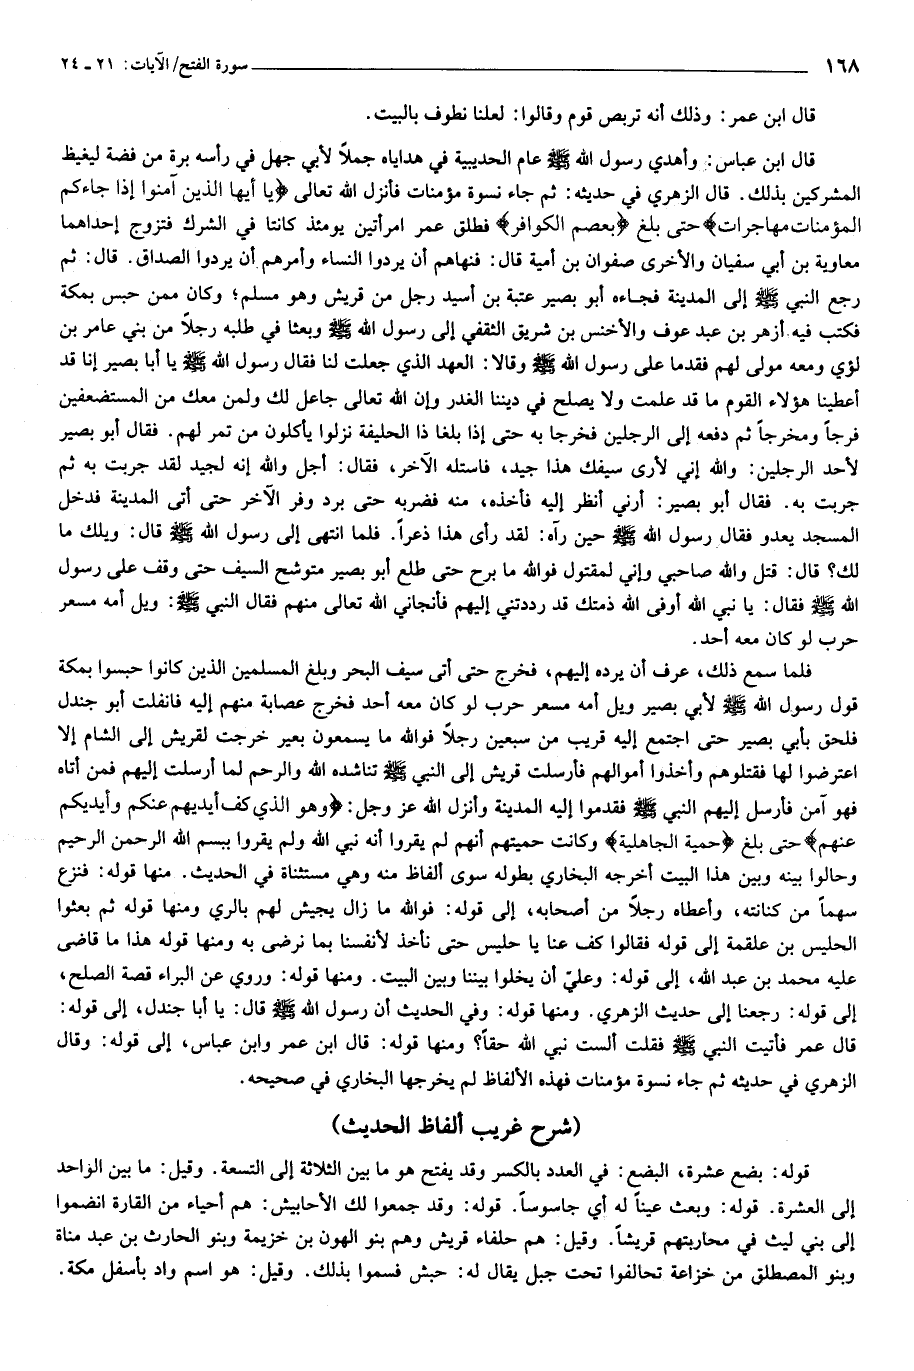 ١٦٨ سورة الفتح/ الآيات: ٢١ ـ ٢٤
قال ابن عمر: وذلك أنه تربص قوم وقالوا: لعلنا نطوف بالبيت.
قال ابن عباس: وأهدي رسول الله ﷺ عام الحديبية في هداياه جملاً لأبي جهل في رأسه برة من فضة ليغيظ
المشركين بذلك. قال الزهري في حديثه: ثم جاء نسوة مؤمنات فأنزل الله تعالى ﴿يا أيها الذين آمنوا إذا جاءكم
المؤمنات مهاجرات﴾ حتى بلغ ﴿بعصم الكوافر﴾ فطلق عمر امرأتين يومئذ كانتا في الشرك فتزوج إحداهما
معاوية بن أبي سفيان والأخرى صفوان بن أمية قال: فنهاهم أن يردوا النساء وأمرهم أن يردوا الصداق. قال: ثم
رجع النبي ﷺ إلى المدينة فجاءه أبو بصير عتبة بن أسيد رجل من قريش وهو مسلم؛ وكان ممن حبس بمكة
فكتب فيه أزهر بن عبد عوف والأخنس بن شريق الثقفي إلى رسول الله ﷺ وبعثا في طلبه رجلاً من بني عامر بن
لؤي ومعه مولى لهم فقدما على رسول الله ﷺ وقالا: العهد الذي جعلت لنا فقال رسول الله ﷺ يا أبا بصير إنا قد
أعطينا هؤلاء القوم ما قد علمت ولا يصلح في ديننا الغدر وإن الله تعالى جاعل لك ولمن معك من المستضعفين
فرجاً ومخرجاً ثم دفعه إلى الرجلين فخرجا به حتى إذا بلغا ذا الحليفة نزلوا يأكلون من تمر لهم. فقال أبو بصير
لأحد الرجلين: والله إني لأرى سيفك هذا جيد، فاستله الآخر، فقال: أجل والله إنه لجيد لقد جربت به ثم
جربت به. فقال أبو بصير: أرني أنظر إليه فأخذه، منه فضربه حتى برد وفر الآخر حتى أتى المدينة فدخل
المسجد يعدو فقال رسول الله ﷺ حين رآه: لقد رأى هذا ذعراً. فلما انتهى إلى رسول الله ﷺ قال: ويلك ما
لك؟ قال: قتل والله صاحبي وإني لمقتول فوالله ما برح حتى طلع أبو بصير متوشح السيف حتى وقف على رسول
الله ﷺ فقال: يا نبي الله أوفى الله ذمتك قد رددتني إليهم فأنجاني الله تعالى منهم فقال النبي ﷺ: ويل أمه مسعر
حرب لو كان معه أحد.
فلما سمع ذلك، عرف أن يرده إليهم، فخرج حتى أتى سيف البحر وبلغ المسلمين الذين كانوا حبسوا بمكة
قول رسول الله ﷺ لأبي بصير ويل أمه مسعر حرب لو كان معه أحد فخرج عصابة منهم إليه فانفلت أبو جندل
فلحق بأبي بصير حتى اجتمع إليه قريب من سبعين رجلاً فوالله ما يسمعون بعير خرجت لقريش إلى الشام إلا
اعترضوا لها فقتلوهم وأخذوا أموالهم فأرسلت قريش إلى النبي ﷺ تناشده الله والرحم لما أرسلت إليهم فمن أتاه
فهو آمن فأرسل إليهم النبي ﷺ فقدموا إليه المدينة وأنزل الله عز وجل: ﴿وهو الذي كف أيديهم عنكم وأيديكم
عنهم﴾ حتى بلغ ﴿حمية الجاهلية﴾ وكانت حميتهم أنهم لم يقروا أنه نبي الله ولم يقروا ببسم الله الرحمن الرحيم
وحالوا بينه وبين هذا البيت أخرجه البخاري بطوله سوى ألفاظ منه وهي مستثناة في الحديث. منها قوله: فنزع
سهماً من كنانته، وأعطاه رجلاً من أصحابه، إلى قوله: فوالله ما زال يجيش لهم بالري ومنها قوله ثم بعثوا
الحليس بن علقمة إلى قوله فقالوا كف عنا يا حليس حتى نأخذ لأنفسنا بما نرضى به ومنها قوله هذا ما قاضى
عليه محمد بن عبد الله، إلى قوله: وعليّ أن يخلوا بيننا وبين البيت. ومنها قوله: وروي عن البراء قصة الصلح،
إلى قوله: رجعنا إلى حديث الزهري. ومنها قوله: وفي الحديث أن رسول الله ﷺ قال: يا أبا جندل، إلى قوله:
قال عمر فأتيت النبي ﷺ فقلت ألست نبي الله حقاً؟ ومنها قوله: قال ابن عمر وابن عباس، إلى قوله: وقال
الزهري في حديثه ثم جاء نسوة مؤمنات فهذه الألفاظ لم يخرجها البخاري في صحيحه.
(شرح غريب ألفاظ الحديث)
قوله: بضع عشرة، البضع: في العدد بالكسر وقد يفتح هو ما بين الثلاثة إلى التسعة. وقيل: ما بين الواحد
إلى العشرة. قوله: وبعث عيناً له أي جاسوساً. قوله: وقد جمعوا لك الأحابيش: هم أحياء من القارة انضموا
إلى بني ليث في محاربتهم قريشاً. وقيل: هم حلفاء قريش وهم بنو الهون بن خزيمة وبنو الحارث بن عبد مناة
وبنو المصطلق من خزاعة تحالفوا تحت جبل يقال له: حبش فسموا بذلك. وقيل: هو اسم واد بأسفل مكة.